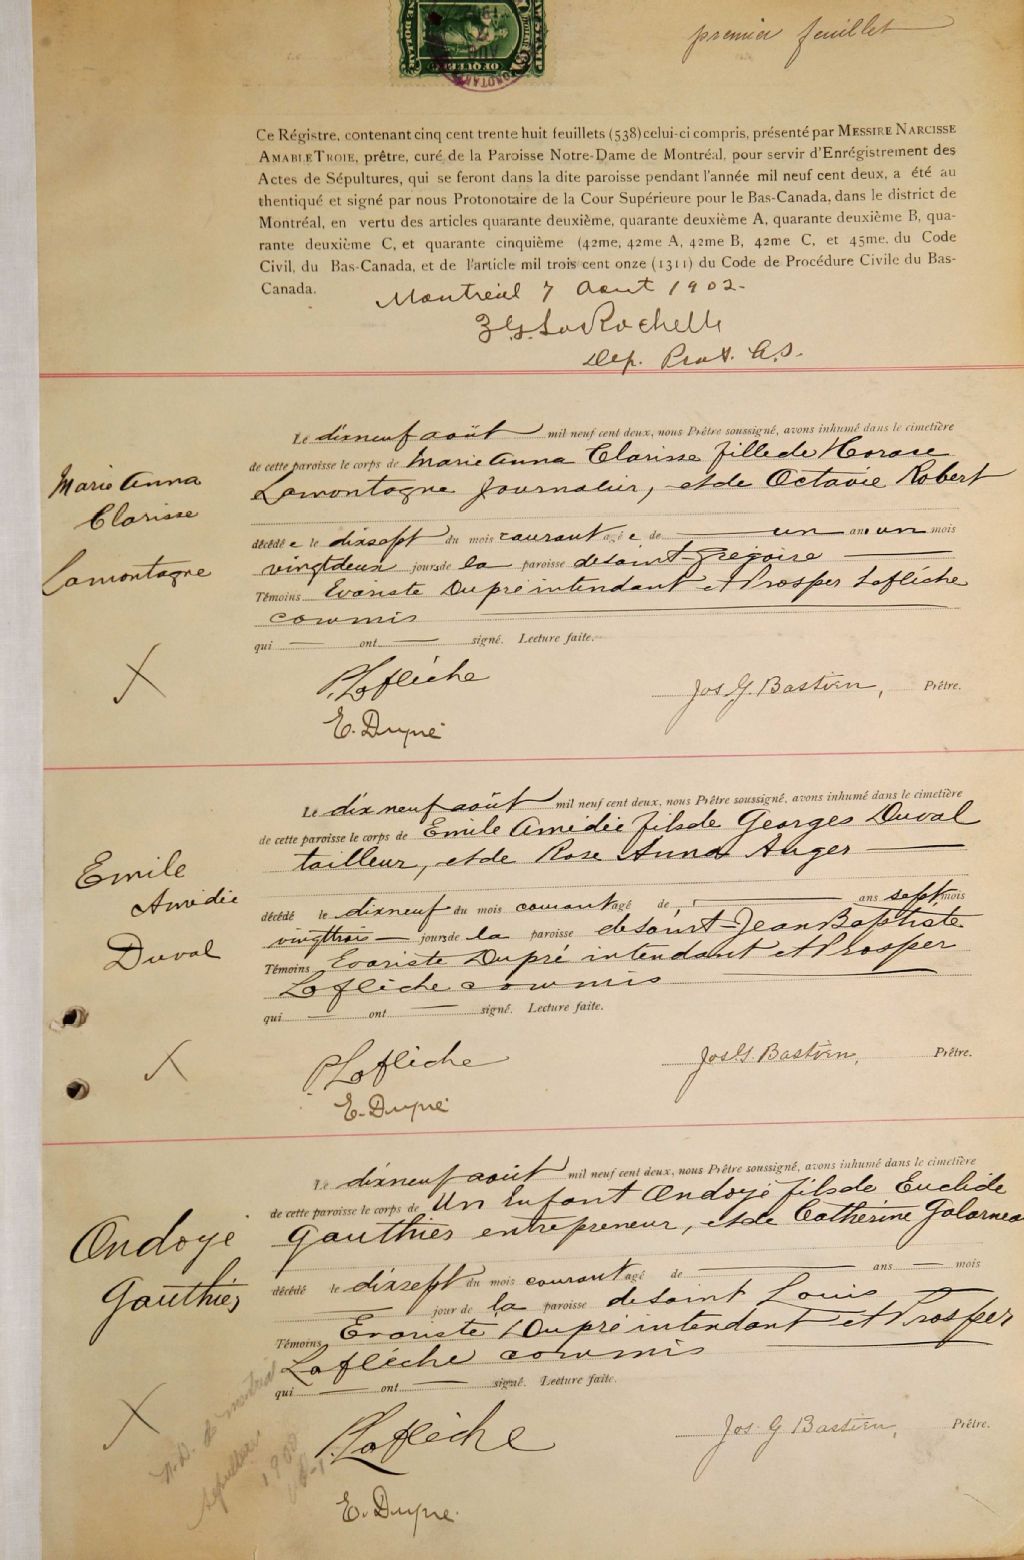 premier feuillet
Ce Régistre, contenant cinq cent trente huit feuillets (538) celui-ci compris, présenté par MESSIRE NARCISSE
AMABLE TROIE, prêtre, curé de la Paroisse Notre-Dame de Montréal, pour servir d'Enrégistrement des
Actes de Sépultures, qui se feront dans la dite paroisse pendant l'année mil neuf cent deux, a été au
thentiqué et signé par nous Protonotaire de la Cour Supérieure pour le Bas-Canada, dans le district de
Montréal, en vertu des articles quarante deuxième, quarante deuxième A, quarante deuxième B, qua-
rante deuxième C, et quarante cinquième (42me, 42me A, 42me B, 42me C, et 45me, du Code
Civil, du Bas-Canada, et de l'article mil trois cent onze (1311) du Code de Procédure Civile du Bas-
Canada.
Montreal 7 Aout 1902-
LaRochelle
Dep. Prot. C.S.
Le dixneuf août mil neuf cent deux, nous Prêtre soussigné, avons inhumé dans le cimetière
de cette paroisse le corps de Marie Anna Clarisse fille de Horase
Lamontagne journalier, et de Octavie Robert
Marie Anna
Clarisse
Lamontagne
décédé e le dixsept du mois courant agé e de un an un mois
vingtdeux jours de la paroisse de saint Grégoire
Témoins Evariste Dupré intendant et Prosper Laflèche
commis
qui ont signé. Lecture faite.
X
P. Laflèche
Jos G. Bastien, Prêtre.
E. Dupré
Le dixneuf août mil neuf cent deux, nous Prêtre soussigné, avons inhumé dans le cimetière
de cette paroisse le corps de Emile Amédée fils de Georges Duval
tailleur, et de Rose Anna Auger
Emile
Amédée
Duval
décédé le dixneuf du mois courant agé de ans sept mois
vingttrois jours de la paroisse de saint Jean Baptiste
Témoins Evariste Dupré intendant et Prosper
Laflèche commis
qui ont signé. Lecture faite.
X
P. Laflèche
Jos G. Bastien, Prêtre.
E. Dupré
Le dixneuf août mil neuf cent deux, nous Prêtre soussigné, avons inhumé dans le cimetière
de cette paroisse le corps de Un Enfant Ondoyé fils de Euclide
Gauthier entrepreneur, et de Catherine Galarneau
Ondoyé
Gauthier
décédé le dixsept du mois courant agé de ans mois
jour de la paroisse de saint Louis
Témoins Evariste Dupré intendant et Prosper
Laflèche commis
qui ont signé. Lecture faite.
X
P. Laflèche
Jos G Bastien, Prêtre.
E. Dupré
N.D. de Montréal
Sépultures